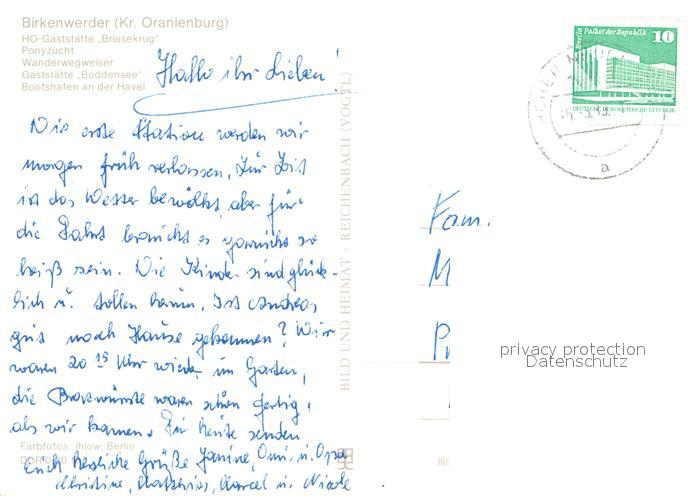 Birkenwerder (Kr. Oranienburg)
HO-Gaststätte „Briesekrug"
Ponyzucht
Wanderwegweiser
Gaststätte „Boddensee"
Bootshafen an der Havel
Hallo ihr Lieben!
Die erste Station werden wir
morgen früh verlassen. Zur Zeit
ist das Wetter bewölkt, aber für
die Fahrt braucht es garnicht so
heiß sein. Die Kinder sind glück-
lich u. tollen herum. Ist Andreas
gut nach Hause gekommen? Wir
waren 20 15 Uhr wieder im Garten,
die Bratwürste waren schon fertig,
als wir kamen. Für heute senden
Euch herzliche Grüße Janine, Omi u. Opa
Christine, Matthias, Marcel u. Nicole
Farbfotos: Ihlow, Berlin
BILD UND HEIMAT · REICHENBACH (VOGTL)
Berlin Palast der Republik
10
DEUTSCHE DEMOKRATISCHE REPUBLIK
a
Fam.
M
privacy protection
Datenschutz